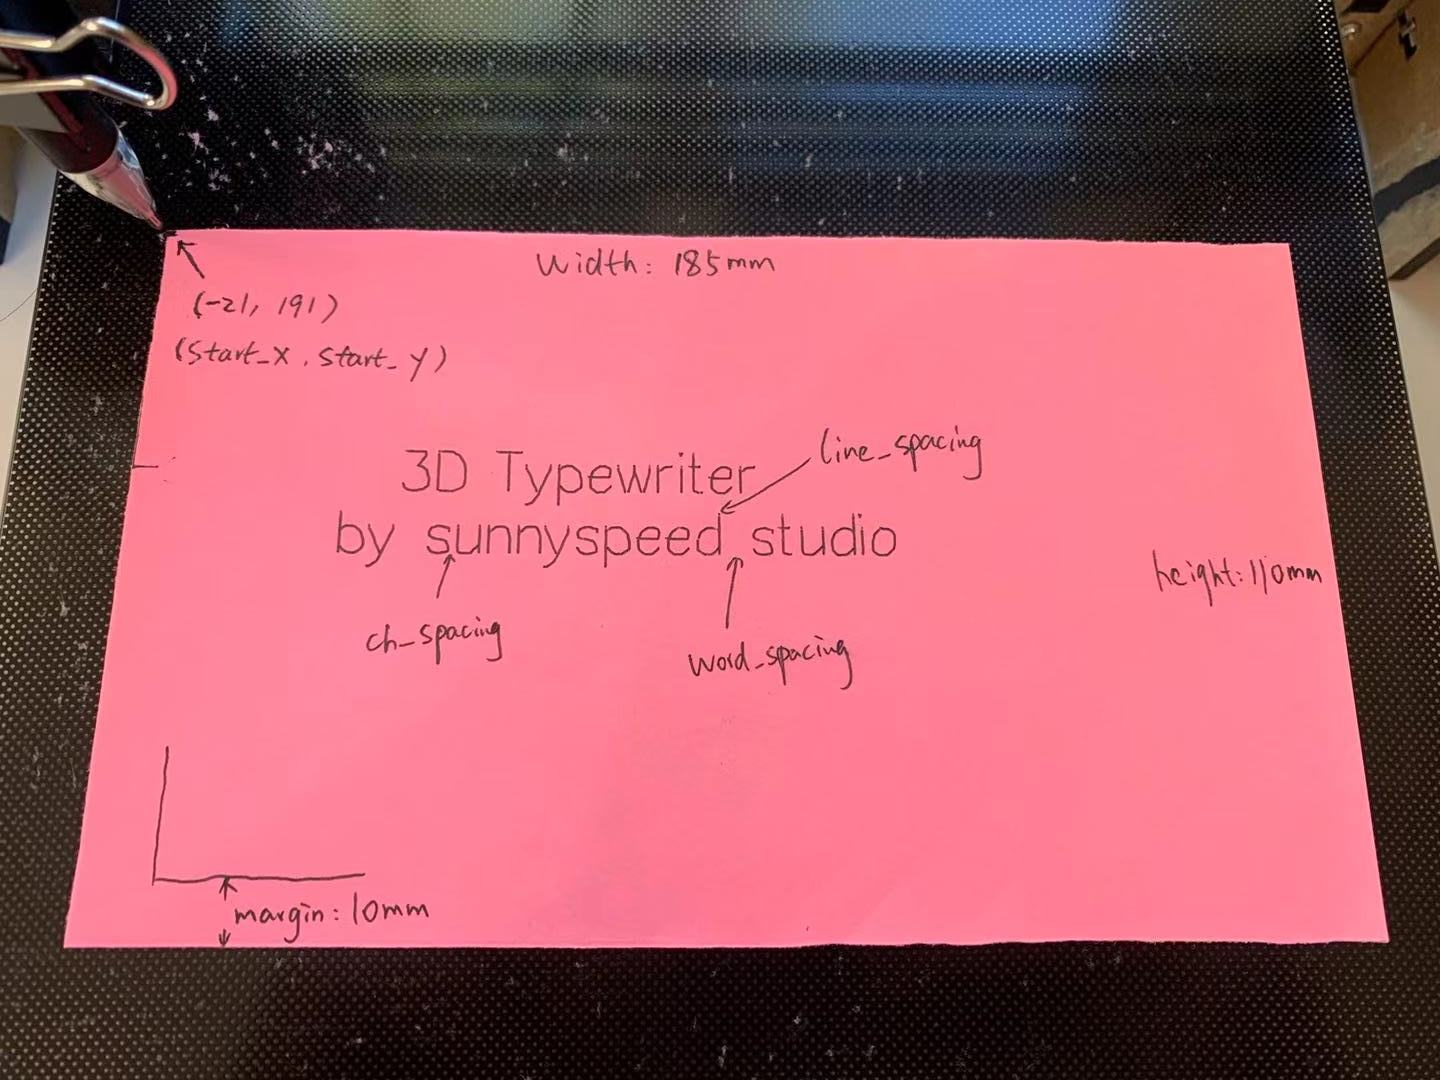 Width: 185mm
(-21, 191)
(Start_X, Start_Y)
line_spacing
3D Typewriter
by sunnyspeed studio
height: 110mm
ch_spacing
word_spacing
margin: 10mm